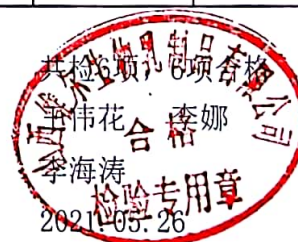 共检6项，6项合格
王伟花 李娜
李海涛
2021.05.26
生物乳制品有限公司
合格
检验专用章